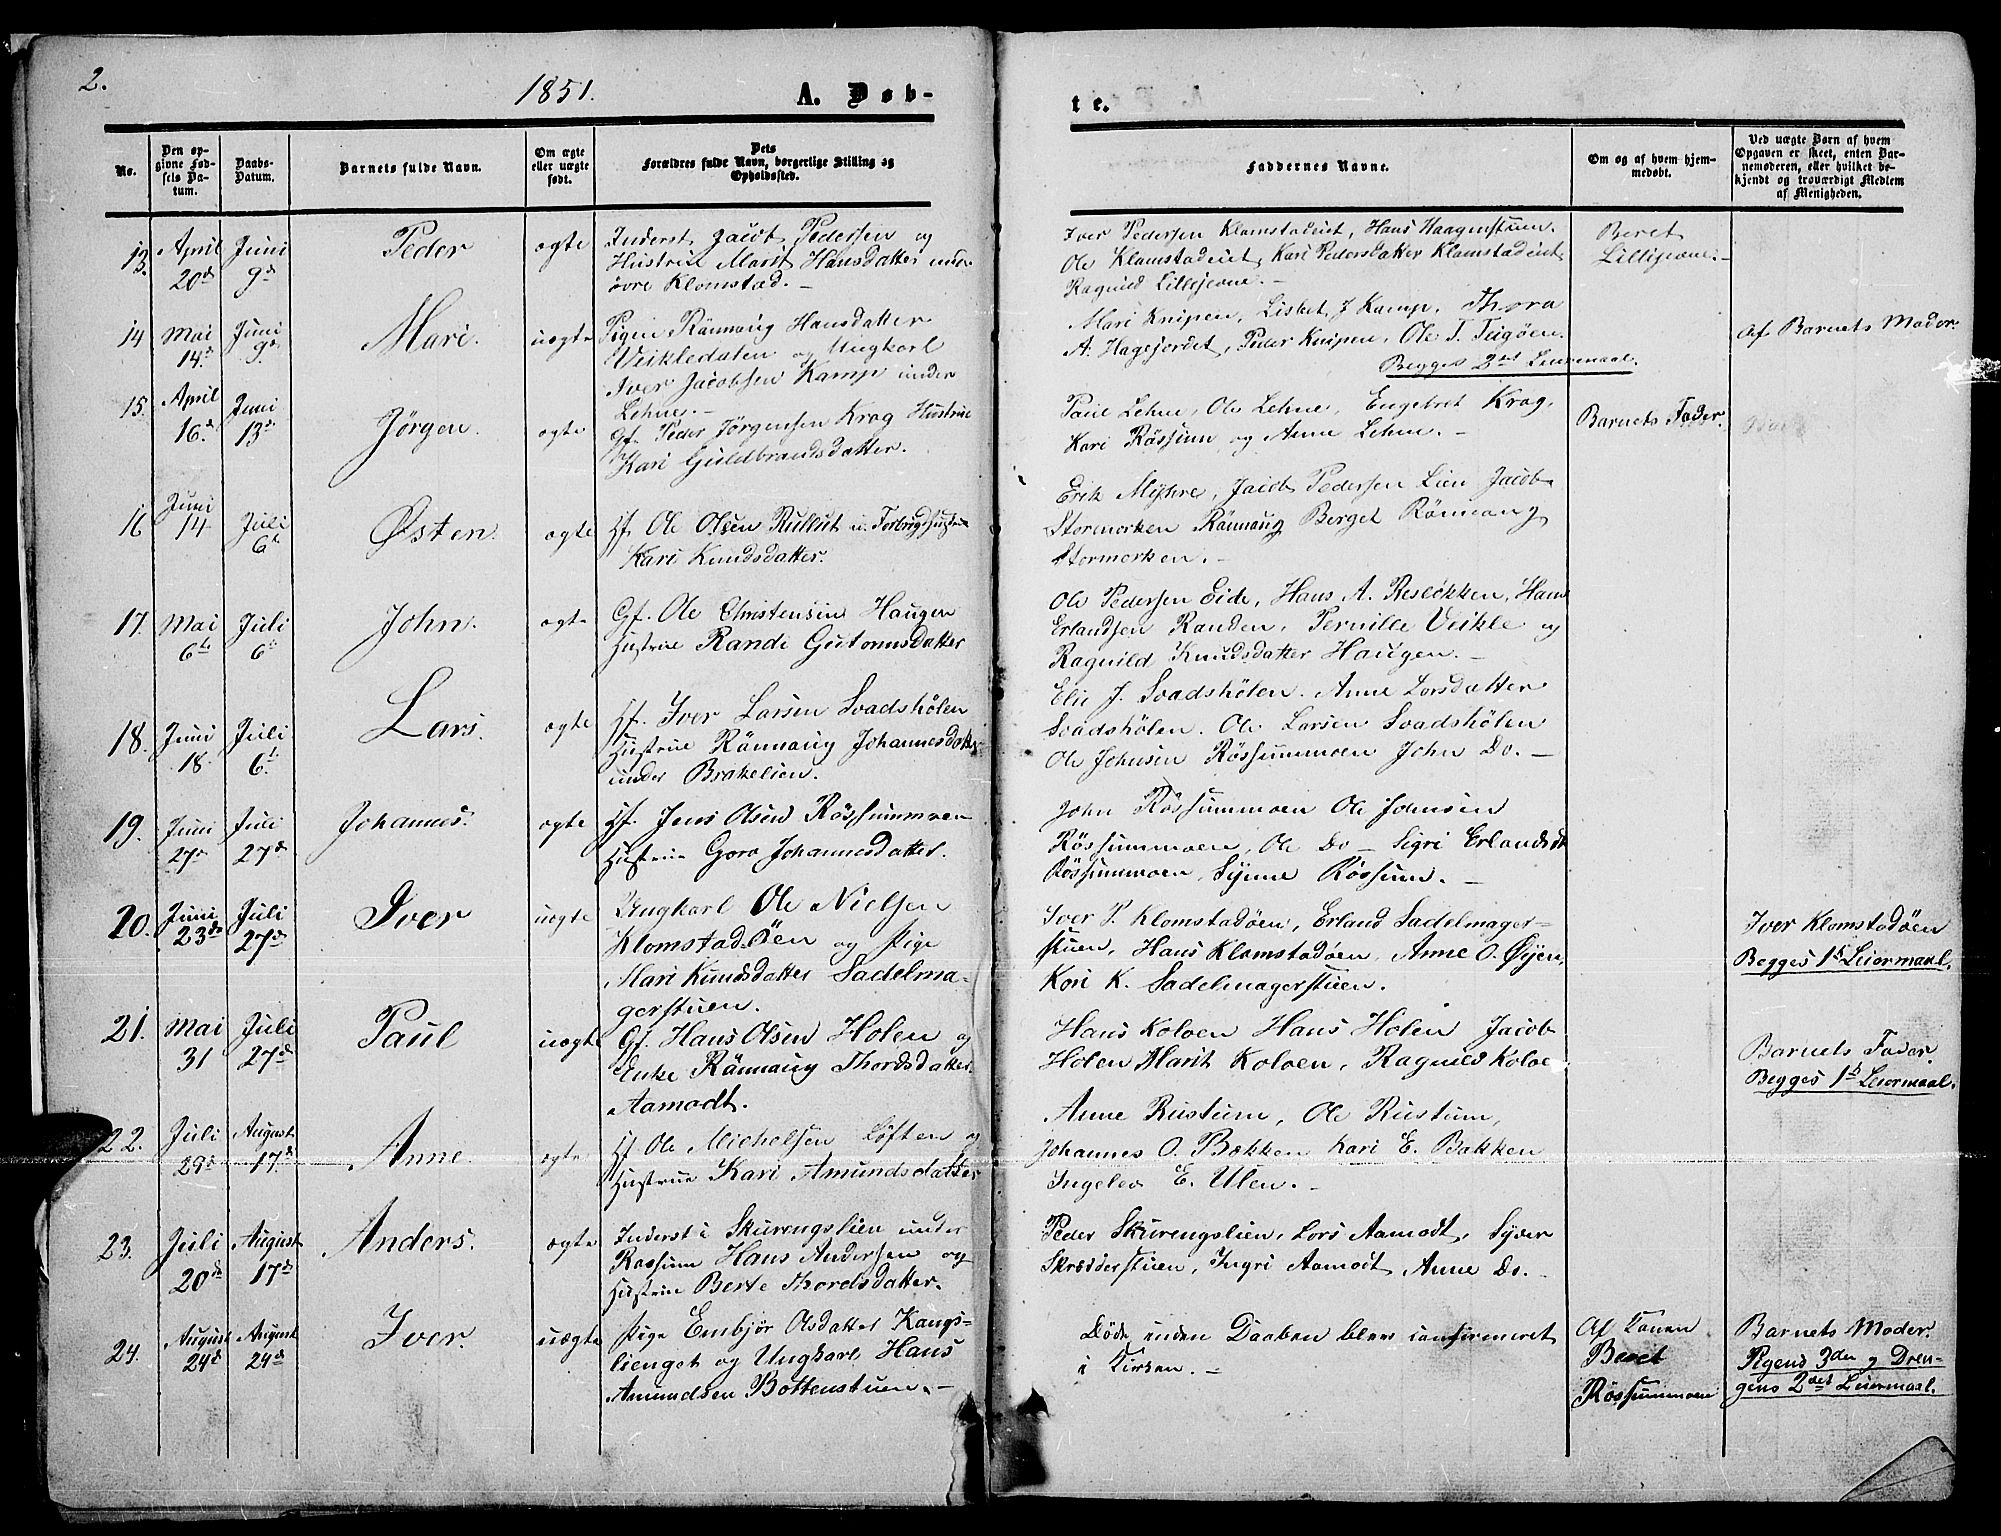 2.
1851.
A. Døb-
te.
No.
Den op-
givne Fød-
sels Da-
tum.
Daabs-
Datum.
Barnets fulde Navn.
Om ægte
eller uægte
født.
Dets
Forældres fulde Navn, borgerlige Stilling og
Opholdssted.
Faddernes Navne.
Om og af hvem hjem-
medøbt.
Ved uægte Børn af hvem
Opgaven er skeet, enten Bar-
nemoderen, eller hvilket be-
kjendt og troværdigt Medlem
af Menigheden.
13.
April
20de
Juni
9de
Peder
ægte
Inderst Jacob Pedersen og
Hustrue Marit Hansdatter under
øvre Klomstad. –
Iver Pedersen Klomstadeiet, Hans Haagenstuen.
Ole Klomstadeiet, Kari Pedersdatter Klomstadeiet
Ragnild Lillejevne. –
Beret
Lillejevne. –
14
Mai
14de
Juni
9de
Mari.
uægte
Pigen Rönnaug Hansdatter
Veikledalen og Ungkarl
Iver Jacobsen Kamp under
Lehne. –
Mari Knipen, Lisbet J Kamp, Thora
A. Hagejordet, Peder Knipen, Ole T. Teigøen.
Begges 2det Leiermaal.
Af Barnets Moder.
15.
April
16de
Juni
13de
Jörgen.
ægte
Gf. Peder Jörgensen Krag Hustrue
Kari Guldbrandsdatter.
Paul Lehne, Ole Lehne, Engebret Krag,
Kari Rössum og Anne Lehne. –
Barnets Fader.
16
Juni
14
Juli
6te
Østen.
ægte
Hf. Ole Olsen Rullut u. Forbrigd Hustrue
Kari Knudsdatter.
Erik Myhre, Jacob Pedersen Lien Jacob
Stormorken Rönnaug Berget Rönnaug
Stormorken. –
17.
Mai
6te
Juli
6te
John.
ægte
Gf. Ole Christensen Haugen
Hustrue Randi Gutormsdatter
Ole Pedersen Eide, Hans A. Resløkken, Hans
Erlandsen Randen, Pernille Veikle og
Ragnild Knudsdatter Haugen. –
18.
Juni
18.
Juli
6te
Lars.
ægte
Hf. Iver Larsen Svadshölen
Hustrue Rönnaug Johannesdatter
under Brækelien.
Elie J. Svadshölen. Anne Larsdatter
Svadshölen. Ole Larsen Svadshölen
Ole Johnsen Rössummoen John Do. –
19.
Juni
27de
Juli
27de
Johannes.
ægte
Hf. Jens Olsen Rössummoen
Hustrue Goro Johannesdatter.
John Rössummoen Ole Johnsen
Rössummoen, Ole Do – Sigri Erlandsdt
Rössummoen, Synne Rössum. –
20.
Juni
23de
Juli
27de
Iver
uægte
Ungkarl Ole Nielsen
Klomstadöen og Pige
Mari Knudsdatter Sadelma-
gerstuen.
Iver P. Klomstadöen, Erland Sadelmager-
stuen, Hans Klomstadöen, Anne O. Øyen,
Kari K. Sadelmagerstuen.
Iver Klomstadöen
Begges 1ste Leiermaal.
21.
Mai
31
Juli
27de
Paul
uægte
Gf. Hans Olsen Holen og
Enke Rönnaug Thordsdatter
Aamodt.
Hans Kolven Hans Holen Jacob
Holen Marit Kolven, Ragnild Kolve
Barnets Fader.
Begges 1ste Leiermaal.
22.
Juli
29de
August
17de
Anne.
ægte
Hf. Ole Michelsen Løften og
Hustrue Kari Amundsdatter
Anne Rustum, Ole Rustum,
Johannes O. Bækken Kari E. Bækken
Ingelev E. Ulen. –
23.
Juli
20de
August
17de
Anders.
ægte
Inderst i Skurengslien under
Rossum Hans Andersen og
Hustrue Berte Thordsdatter.
Peder Skurengslien, Lars Aamodt, Syver
Skræderstuen, Ingri Aamodt Anne Do. –
24.
August
24de
August
24de
Iver.
uægte
Pige Embjör Olsdatter Kangs-
lienget og Ungkarl Hans
Amundsen Bottenstuen. –
Døde inden Daaben blev confirmeret
i Kirken. –
Af Konen
Beret
Rössummoen
Barnets Moder.
Pigens 3die og Dren-
gens 2det Leiermaal.